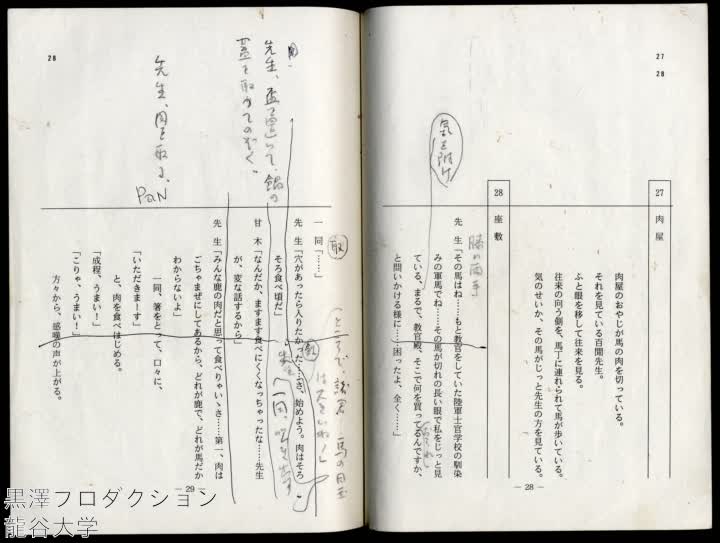 27
28
27 肉屋
肉屋のおやじが馬の肉を切っている。
それを見ている百閒先生。
ふと眼を移して往来を見る。
往来の向う側を、馬丁に連れられて馬が歩いている。
気のせいか、その馬がじっと先生の方を見ている。
28 座敷
気を附け
膝の両手
先生「その馬はね……もと教官をしていた陸軍士官学校の馴染
みの軍馬でね……その馬が切れの長い眼で私をじっと見
ている。まるで、教官殿、そこで何を買ってるんですか、
と問いかける様に……困ったよ、全く……」
― 28 ―
28
一同「……」
先生「穴があったら入りたかった……さ、始めよう。肉はそろ
そろ食べ頃だ」
甘木「なんだか、ますます食べにくくなっちゃったな……先生
が、変な話するから」
先生「みんな鹿の肉だと思って食べりゃいゝさ……第一、肉は
ごちゃまぜにしてあるから、どれが鹿で、どれが馬だか
わからないよ」
一同、箸をとって、口々に、
「いただきまーす」
と、肉を食べはじめる。
「成程、うまい！」
「こりゃ、うまい！」
方々から、感嘆の声が上がる。
先生、盃を置いて、鍋の
蓋を取ってのぞく。
先生、肉を取る、
PAN
― 29 ―
黒澤プロダクション
龍谷大学